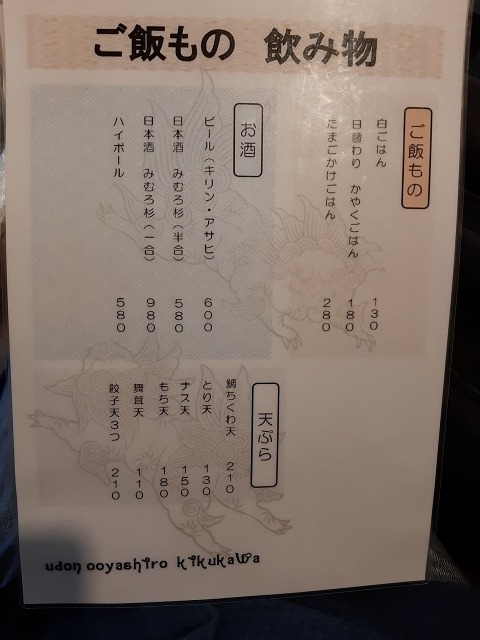 ご飯もの 飲み物
ご飯もの
白ごはん 130
日替わり かやくごはん 180
たまごかけごはん 280
お酒
ビール(キリン・アサヒ) 600
日本酒 みむろ杉(半合) 580
日本酒 みむろ杉(一合) 980
ハイボール 580
天ぷら
鯛ちくわ天 210
とり天 130
ナス天 150
もち天 180
舞茸天 110
餃子天3つ 210
udon ooyashiro kikukawa